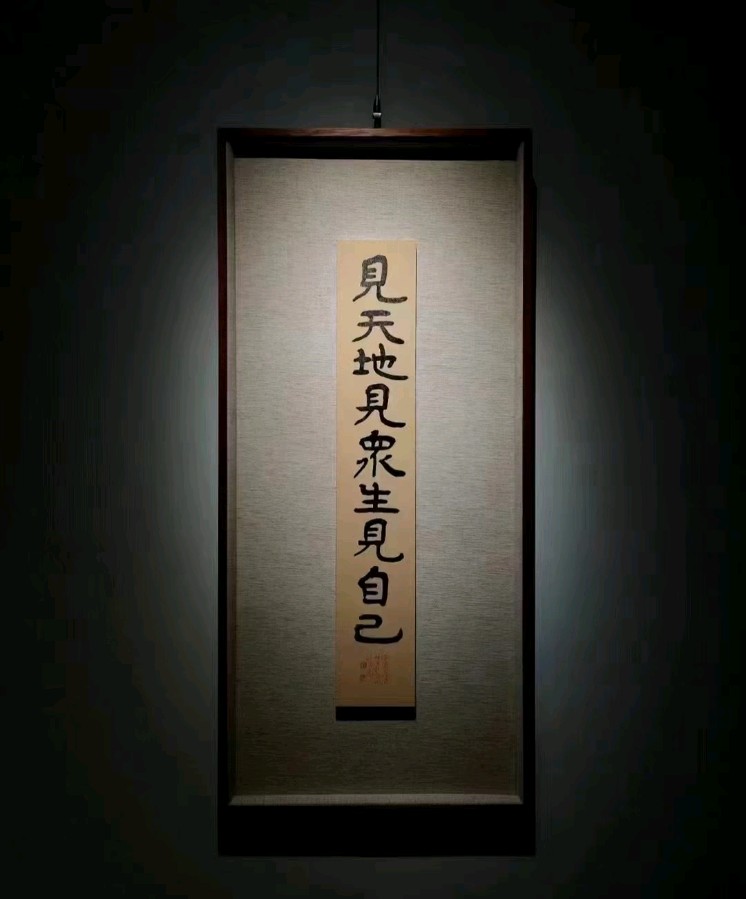 見天地見眾生見自己